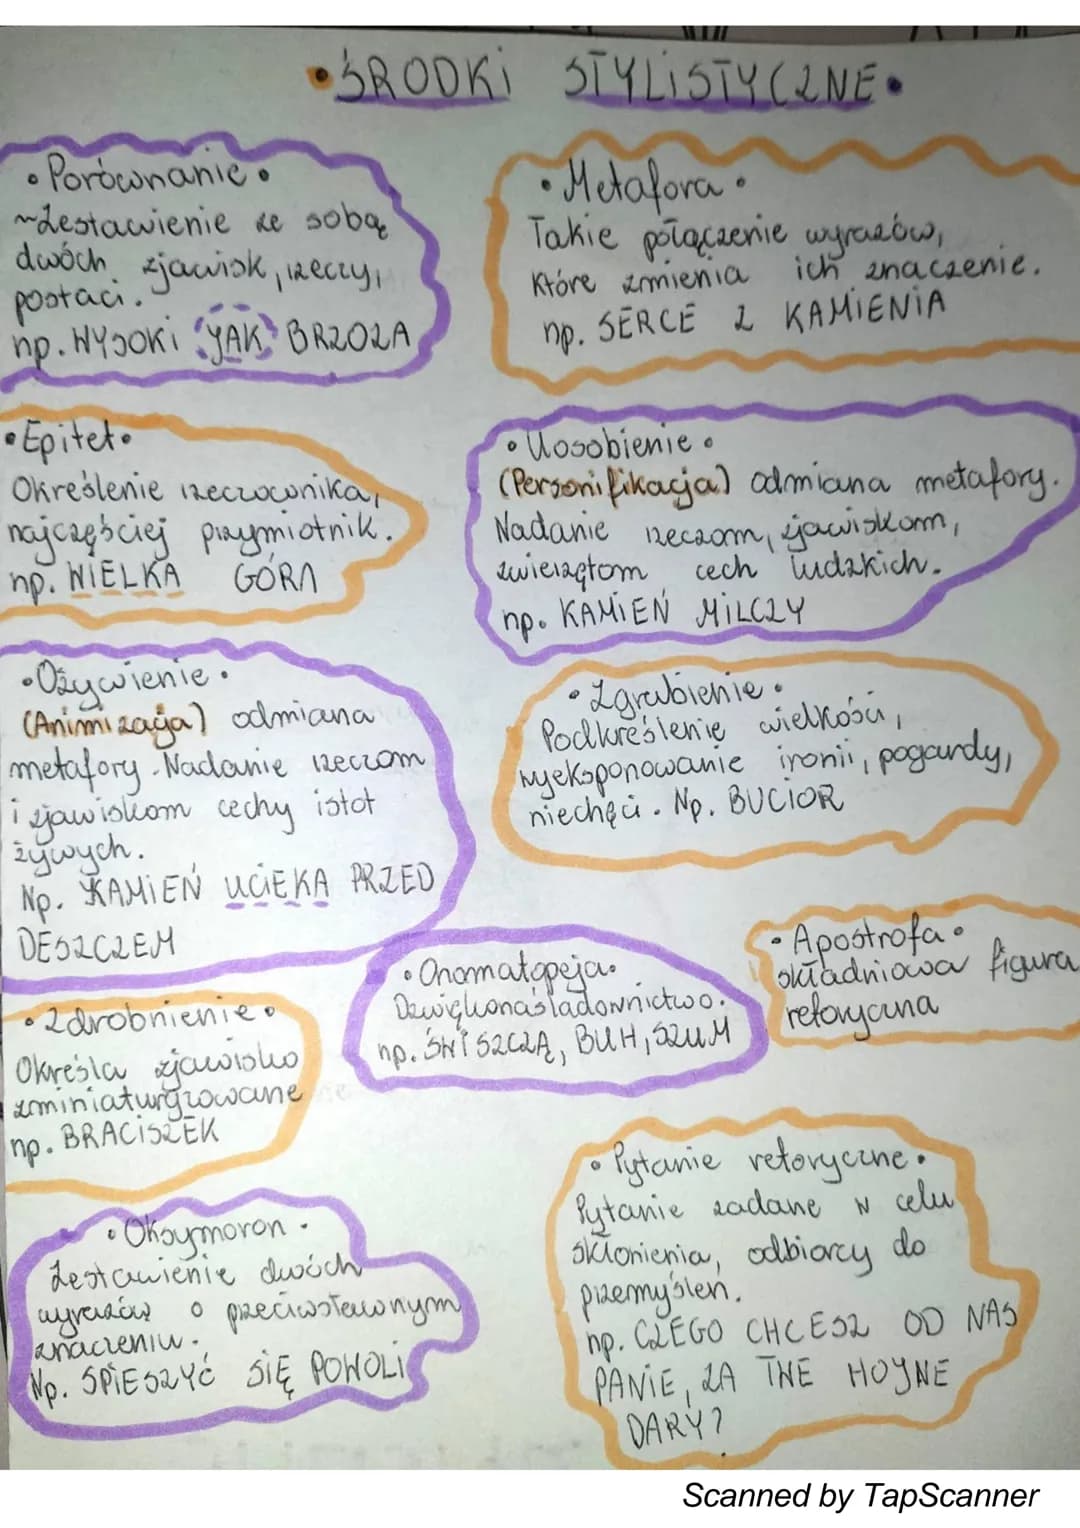 •ŚRODKI STYLISTYCZNE•
•Porównanie•
~Zestawienie ze sobą
dwóch zjawisk, rzeczy,
postaci.
np. WYSOKI JAK BRZOZA
•Metafora•
Takie połączenie wyrazów,
które zmienia ich znaczenie.
np. SERCE Z KAMIENIA
•Epitet•
Określenie rzeczownika,
najczęściej przymiotnik.
np. WIELKA GÓRA
•Uosobienie•
(Personifikacja) odmiana metafory.
Nadanie rzeczom, zjawiskom,
zwierzętom cech ludzkich.
np. KAMIEŃ MILCZY
•Ożywienie•
(Animizacja) odmiana
metafory. Nadanie rzeczom
i zjawiskom cechy istot
żywych.
Np. KAMIEŃ UCIEKA PRZED
DESZCZEM
•Zgrubienie•
Podkreślenie wielkości,
wyeksponowanie ironii, pogardy,
niechęci. Np. BUCIOR
•Onomatopeja•
Dźwiękonaśladownictwo.
np. ŚWISZCZĄ, BUH, SZUM
•Apostrofa•
składniowa figura
retoryczna
•Zdrobnienie•
Określa zjawisko
zminiaturyzowane
np. BRACISZEK
•Oksymoron•
Zestawienie dwóch
wyrazów o przeciwstawnym
znaczeniu.
Np. SPIESZYĆ SIĘ POWOLI
•Pytanie retoryczne•
Pytanie zadane w celu
skłonienia, odbiorcy do
przemyśleń.
np. CZEGO CHCESZ OD NAS
PANIE, ZA TWE HOJNE
DARY?
Scanned by TapScanner